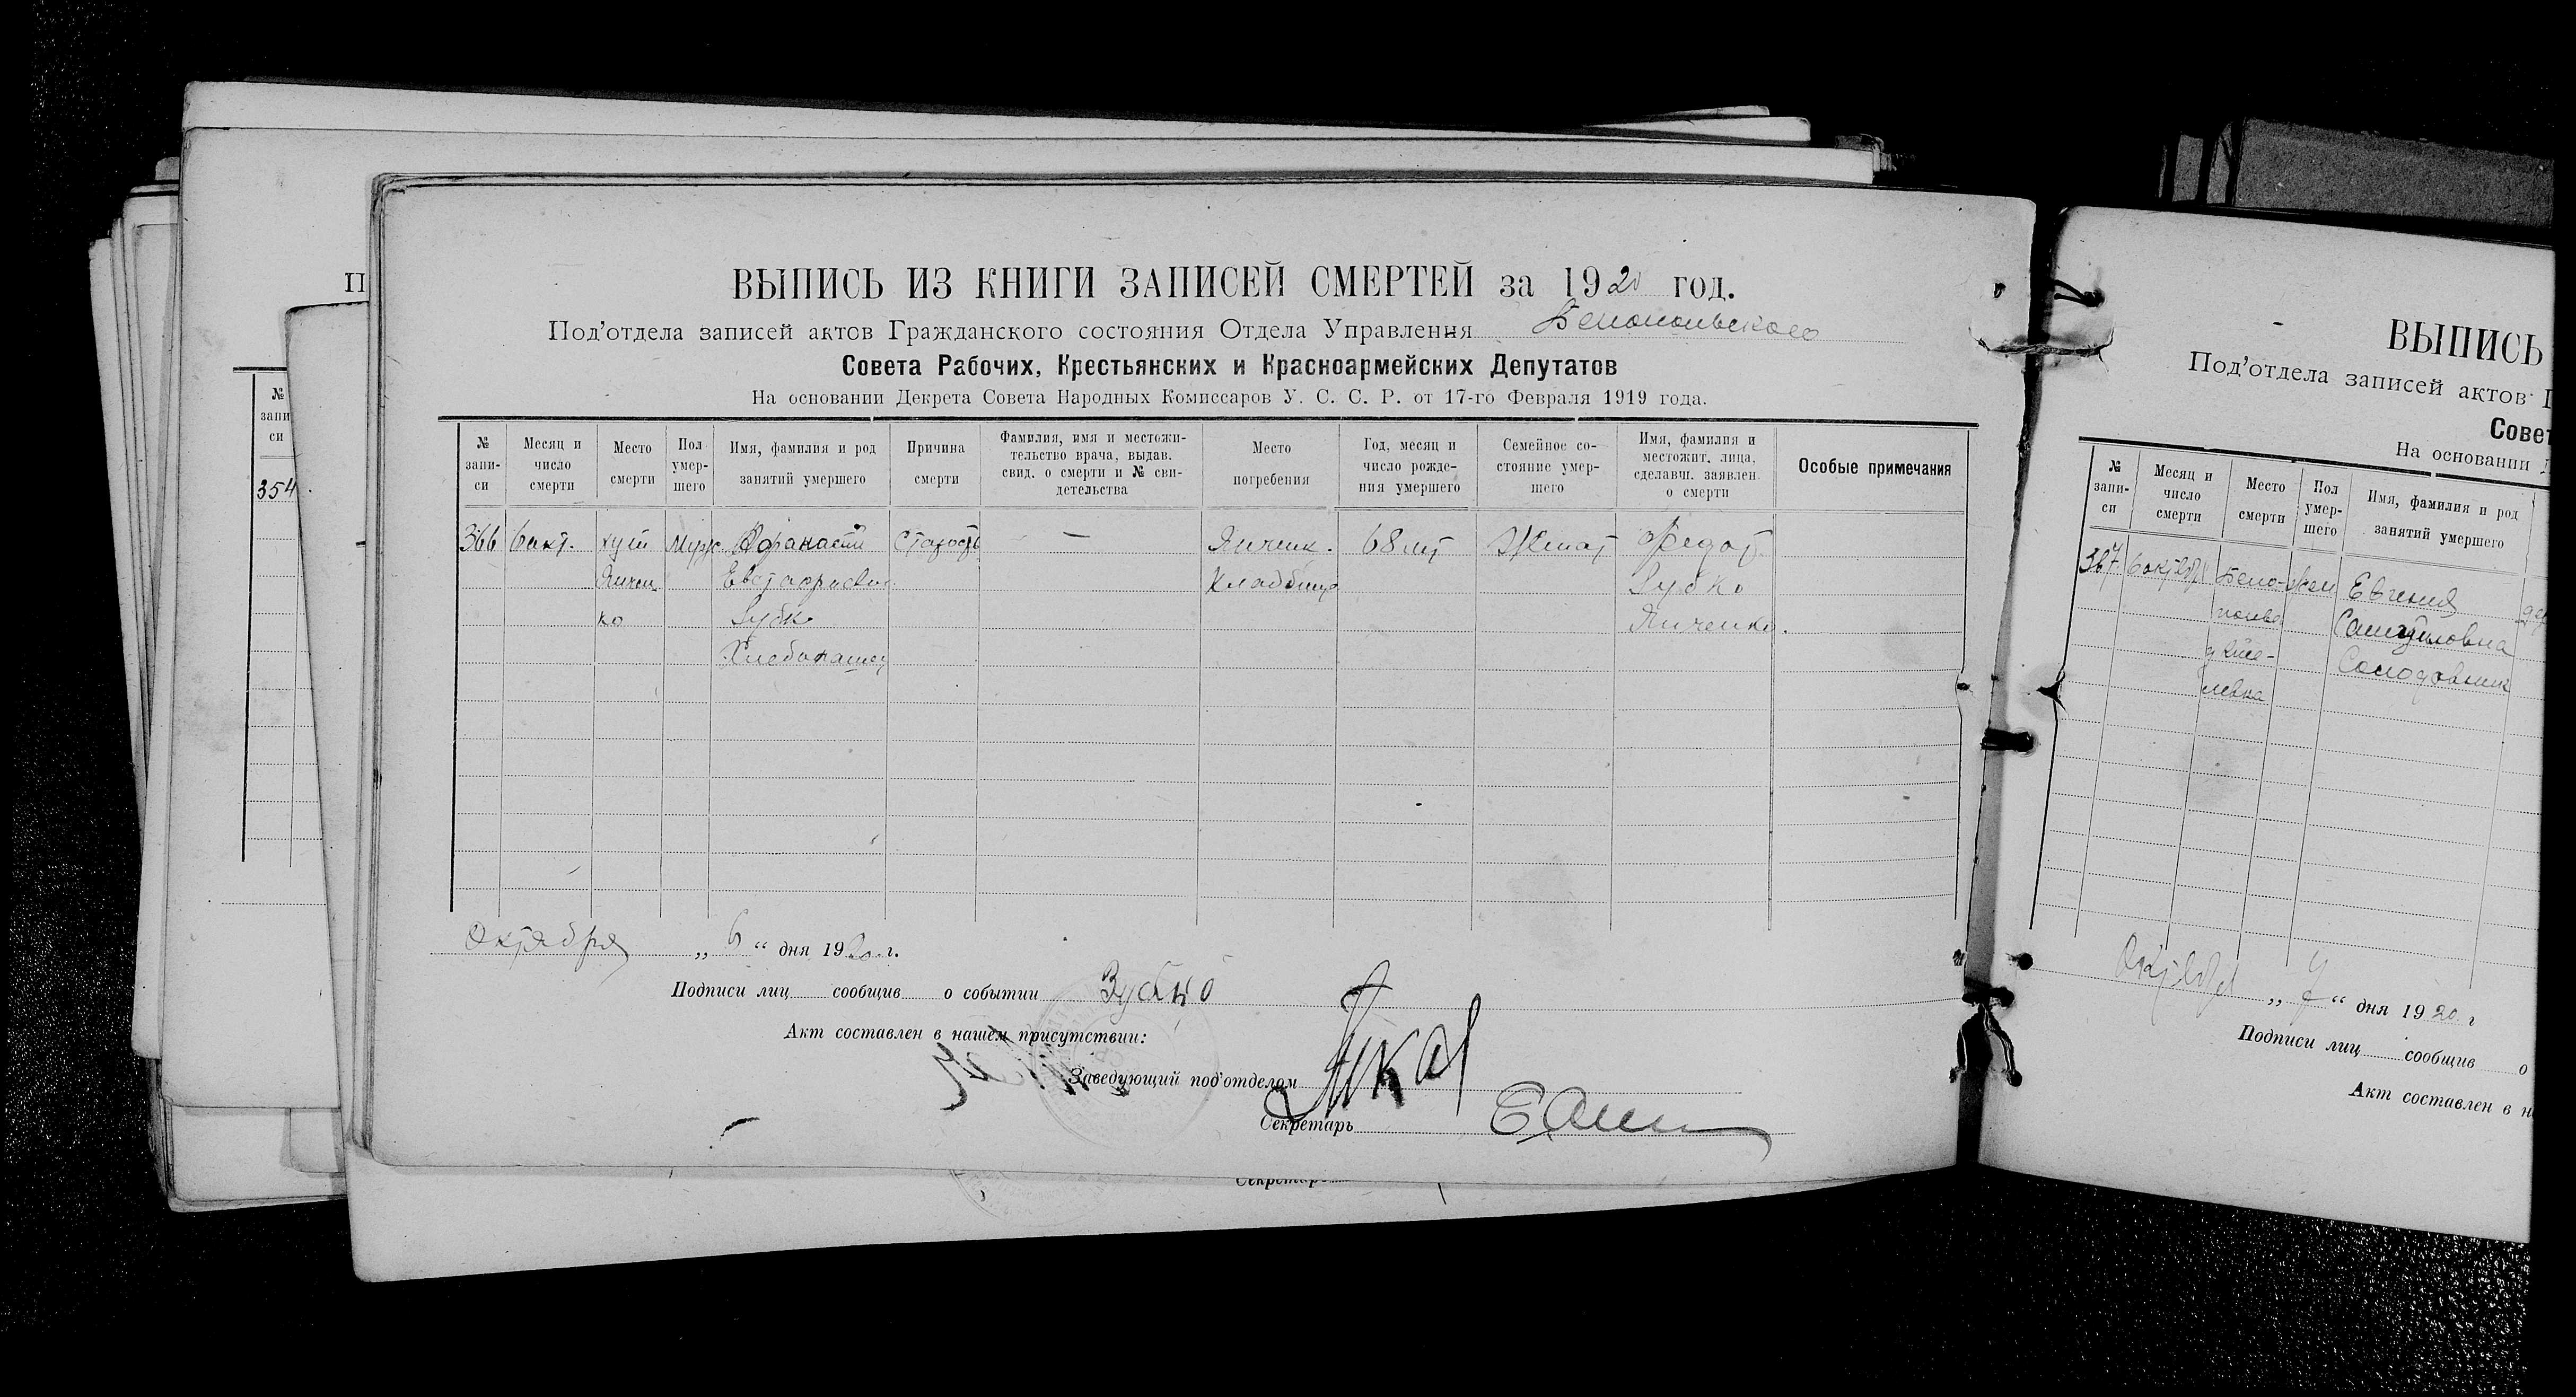 ВЫПИСЬ ИЗ КНИГИ ЗАПИСЕЙ СМЕРТЕЙ за 1920 год.
Под'отдела записей актов Гражданского состояния Отдела Управления Белопольского
Совета Рабочих, Крестьянских и Красноармейских Депутатов
На основании Декрета Совета Народных Комиссаров У. С. С. Р. от 17-го Февраля 1919 года.
№ запи- си
Месяц и число смерти
Место смерти
Пол умер- шего
Имя, фамилия и род занятий умершего
Причина смерти
Фамилия, имя и местожи- тельство врача, выдав. свид. о смерти и № сви- детельства
Место погребения
Год, месяц и число рожде- ния умершего
Семейное со- стояние умер- шего
Имя, фамилия и местожит. лица, сделавш. заявлен. о смерти
Особые примечания
366 6 окт. хут Муж Афанасий Старость — Янченк. 68 лет Женат Федот
Янчен Евстафиевич Кладбище Зубко
ко Зубко Янченко.
Хлебопашец
Октября „ 6 “ дня 1920 г.
Подписи лиц сообщив о событии Зубко
Акт составлен в нашем присутствии:
Заведующий под'отделом
Секретарь
Секретарь
П
№
запи
си
354
ВЫПИСЬ
Под'отдела записей актов Г
Совет
На основании Д
№ запи- си
Месяц и число смерти
Место смерти
Пол умер- шего
Имя, фамилия и род занятий умершего
367. 6 октября Бело- Жен Евгения
Самуиловна
Солодовник
левка
Октября „ 7 “ дня 1920 г
Подписи лиц сообщив о
Акт составлен в н